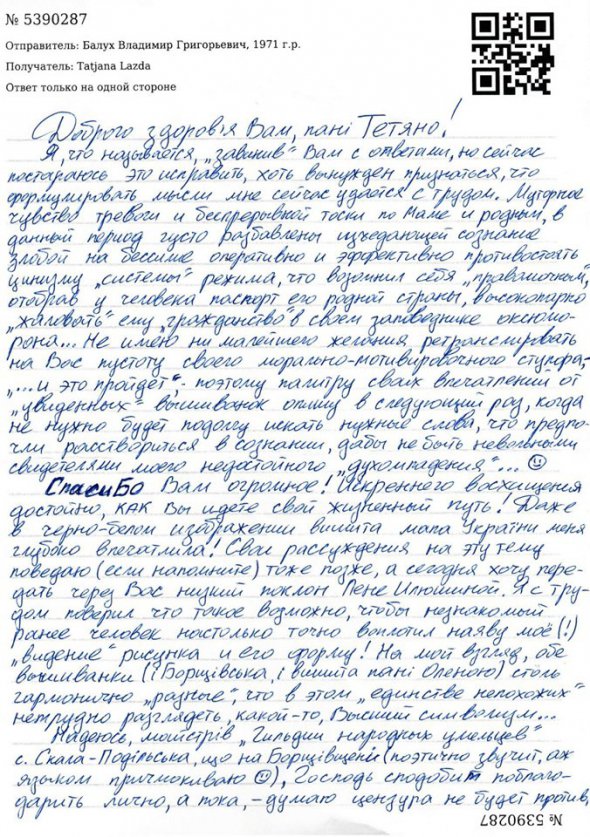 № 5390287
Отправитель: Балух Владимир Григорьевич, 1971 г.р.
Получатель: Tatjana Lazda
Ответ только на одной стороне
Доброго здоров'я Вам, пані Тетяно!
Я, что называется, „завинив" Вам с ответами, но сейчас
постараюсь это исправить, хоть вынужден признаться, что
формулировать мысли мне сейчас удаётся с трудом. Муторное
чувство тревоги и беспрерывной тоски по Маме и родным, в
данный период густо разбавлены изъедающей сознание
злобой на бессилие оперативно и эффективно противостоять
цинизму „системы" режима, что возомнил себя „правомочным",
отобрав у человека паспорт его родной страны, высокопарно
„жаловать" ему „гражданство" в своём заповеднике оксюмо-
рона... Не имею ни малейшего желания ретранслировать
на Вас пустоту своего морально-мотивировочного ступора,-
„...и это пройдет",- поэтому палитру своих впечатлений от
„увиденных" вышиванок опишу в следующий раз, когда
не нужно будет подолгу искать нужные слова, что предпо-
чли расствориться в сознании, дабы не быть невольными
свидетелями моего недостойного „духомпадения"...
СпасиБО Вам огромное! Искреннего восхищения
достойно, КАК Вы идете свой жизненный путь! Даже
в черно-белом изображении вишита мапа України меня
глубоко впечатлила! Свои рассуждения на эту тему
поведаю (если напомните) тоже позже, а сегодня хочу пере-
дать через Вас низкий поклон Лене Илюшиной. Я с тру-
дом поверил что такое возможно, чтобы незнакомый
ранее человек настолько точно воплотил наяву моё (!)
„видение" рисунка и его форму! На мой взгляд, обе
вышиванки (і Борщівська, і вишита пані Оленою) столь
гармонично „разные", что в этом „единстве непохожих"
нетрудно разглядеть, какой-то, Высший символизм...
Надеюсь, майстрів „Гильдии народных умельцев"
с. Скала-Подільська, що на Борщівщені (поэтично звучит, аж
языком причмокиваю), Господь сподобит поблаго-
дарить лично, а пока,- думаю цензура не будет против,
№ 5390287